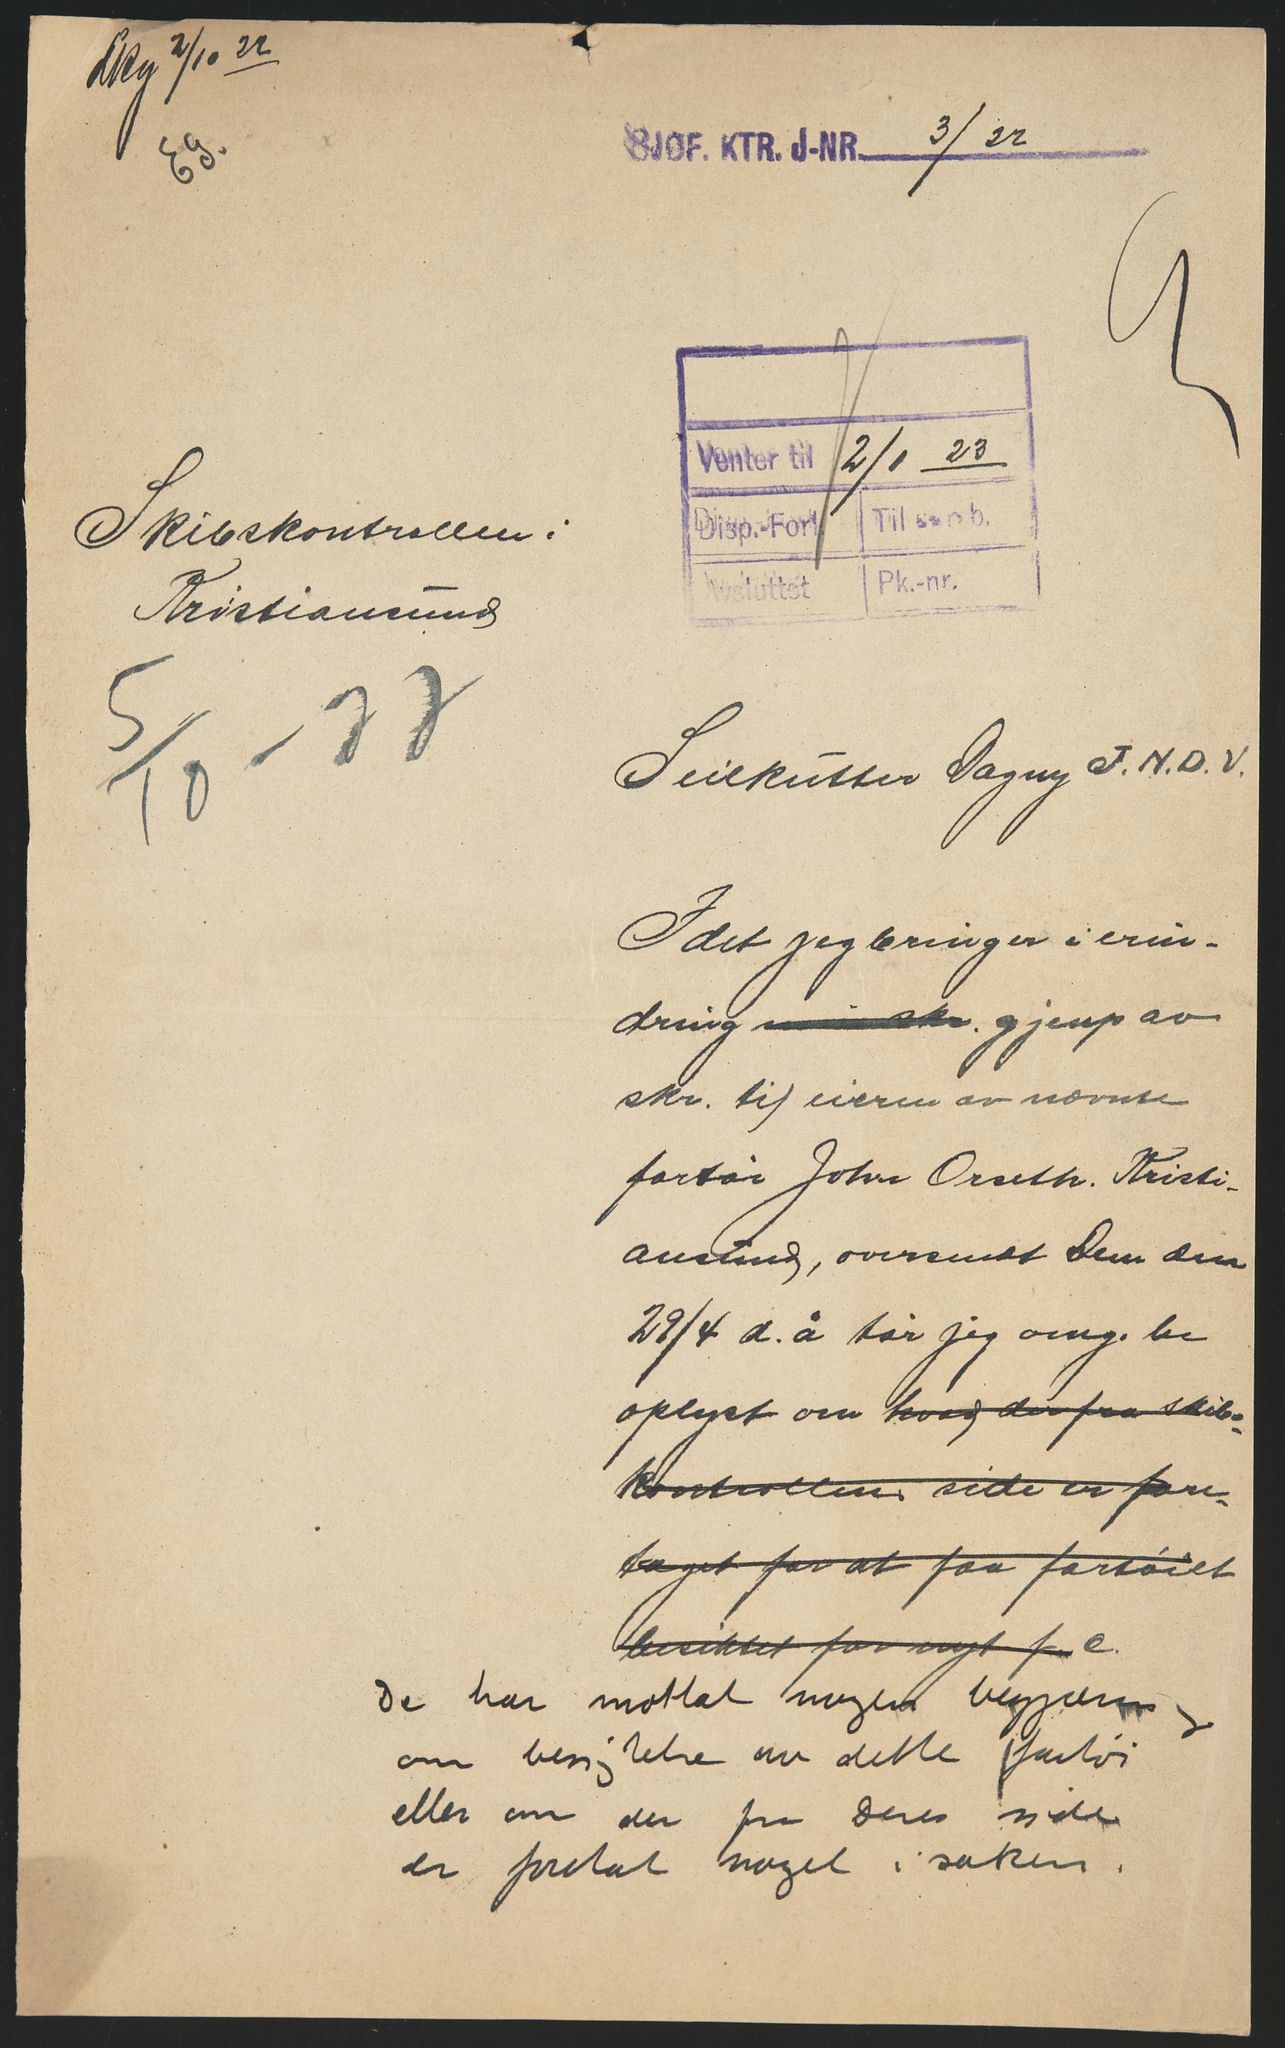 2/10 22
Eg.
SJØF. KTR. J-NR. 3/22
Venter til 2/1 23
Disp.-Forf. Til
Avsluttet Pk.-nr.
Skibskontrollen i
Kristiansund
5/10 - 22
Seilkutter Dagny J.N.D.V.
Idet jeg bringer i erin-
dring min skr. gjenp av
skr. til eieren av nævnte
fartøi John Orseth. Kristi-
ansund, oversendt Dem den
29/4 d. å tør jeg omg. be
oplyst om hvad der fra skibs-
kontrollens side er fore-
taget for at faa fartøiet
besiktet for nyt f. c.
De har mottat nogen begjæring
om besigtelse av dette fartøi
eller om der fra Deres side
er foretat noget i saken.